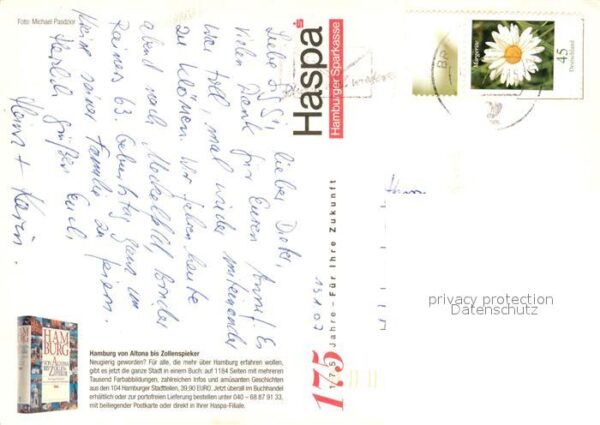 Foto: Michael Pasdzior
Liebe
lieber
vielen Dank für Euren Anruf. Es
war toll, mal wieder miteinander
zu
Wir fahren heute
abend nach Meckelfeld,
Rainer 63. Geburtstag ganz im
seiner Familie zu feiern.
Herzlich grüßen Euch
Heinz + Karin.
Haspa
Hamburger Sparkasse
175
175 Jahre – Für Ihre Zukunft
Margerite
45
Deutschland
privacy protection
Datenschutz
HAM
BURG
VON ALTONA
BIS ZOLLEN-
SPIEKER
Hamburg von Altona bis Zollenspieker
Neugierig geworden? Für alle, die mehr über Hamburg erfahren wollen,
gibt es jetzt die ganze Stadt in einem Buch: auf 1184 Seiten mit mehreren
Tausend Farbabbildungen, zahlreichen Infos und amüsanten Geschichten
aus den 104 Hamburger Stadtteilen, 39,90 EURO. Jetzt überall im Buchhandel
erhältlich oder zur portofreien Lieferung bestellen unter 040 – 68 87 91 33,
mit beiliegender Postkarte oder direkt in Ihrer Haspa-Filiale.